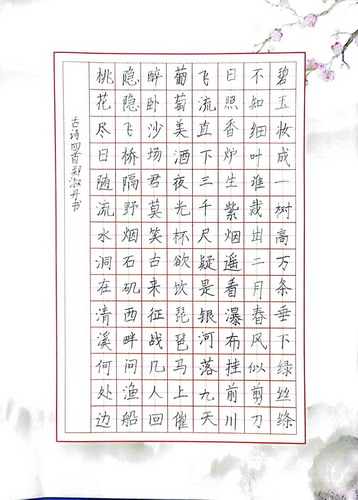 碧玉妆成一树高万条垂下绿丝绦
不知细叶谁裁出二月春风似剪刀
日照香炉生紫烟遥看瀑布挂前川
飞流直下三千尺疑是银河落九天
葡萄美酒夜光杯欲饮琵琶马上催
醉卧沙场君莫笑古来征战几人回
隐隐飞桥隔野烟石矶西畔问渔船
桃花尽日随流水洞在清溪何处边
古诗四首郑淑丹书